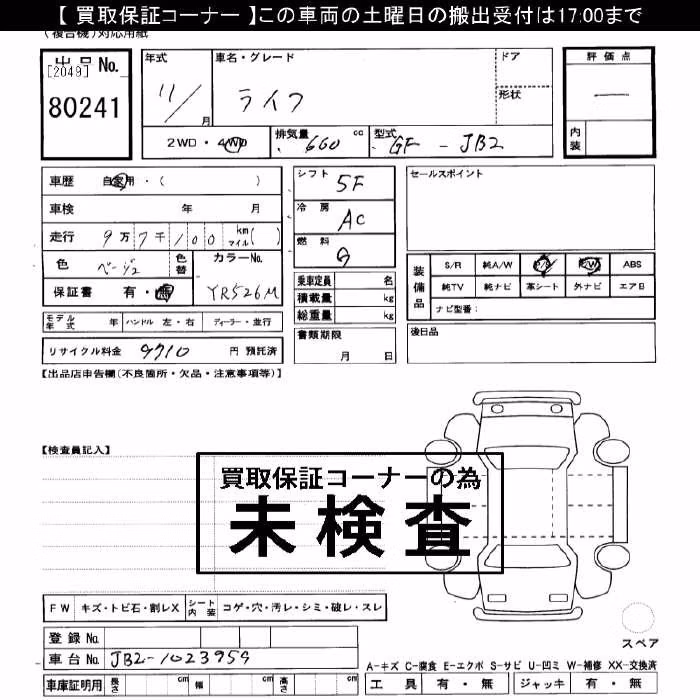 【 買取保証コーナー 】この車両の土曜日の搬出受付は17:00まで
(複合機)対応用紙
出品 No.
[2049]
80241
年式
11/
月
車名・グレード
ライフ
ドア
形状
評価点
―
内装
2WD・4WD
排気量 660 cc
型式 GF - JB2
車歴 自家用・( )
車検 年 月
走行 9万7千100 km マイル( )
色 ベージュ
色替
カラーNo.
YR526M
保証書 有・無
モデル年式 年
ハンドル 左・右
ディーラー・並行
リサイクル料金 9710 円 預託済
シフト 5F
冷房 AC
燃料 G
乗車定員 名
積載量 kg
総重量 kg
書類期限
月 日
セールスポイント
装備品
S/R 純A/W P/S P/W ABS
純TV 純ナビ 革シート 外ナビ エアB
ナビ型番:
後日品
【出品店申告欄(不良箇所・欠品・注意事項等)】
【検査員記入】
買取保証コーナーの為
未検査
FW キズ・トビ石・割レX
シート内装 コゲ・穴・汚レ・シミ・破レ・スレ
登録 No.
車台 No. JB2-1023959
車庫証明用 長さ cm 幅 cm 高さ cm
スペア
A-キズ C-腐食 E-エクボ S-サビ U-凹ミ W-補修 XX-交換済
工具 有・無 ジャッキ 有・無